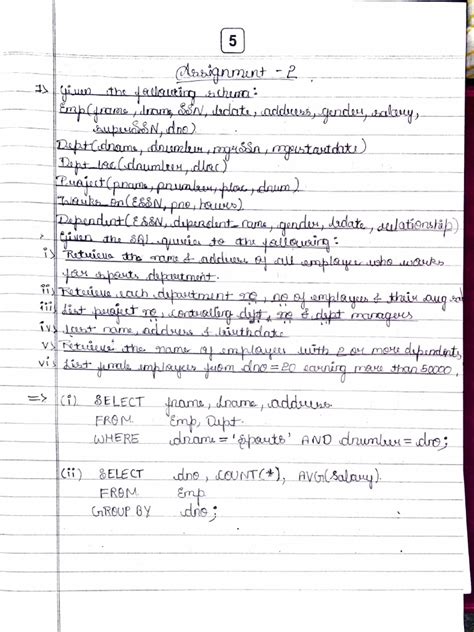 5
Assignment - 2
1) Given the following schema:
Emp(fname, lname, SSN, bdate, address, gender, salary,
superSSN, dno)
Dept(dname, dnumber, mgrSSn, mgrstartdate)
Dept_loc(dnumber, dloc)
Project(pname, pnumber, ploc, dnum)
Works_on(ESSN, pno, hours)
Dependent(ESSN, dependent_name, gender, bdate, relationship)
Given the SQL queries to the following:
i) Retrieve the name & address of all employee who works
for sports department.
ii) Retrieve each department no, no of employees & their avg sal
iii) List project no, controlling dept, no & dept managers
iv) last name, address & birthdate
v) Retrieve the name of employees with 2 or more dependents,
vi) List female employees from dno=20 earning more than 50000,
=> (i) SELECT fname, lname, address
FROM Emp, Dept
WHERE dname = 'Sports' AND dnumber = dno;
(ii) SELECT dno, COUNT(*), AVG(Salary)
FROM Emp
GROUP BY dno;